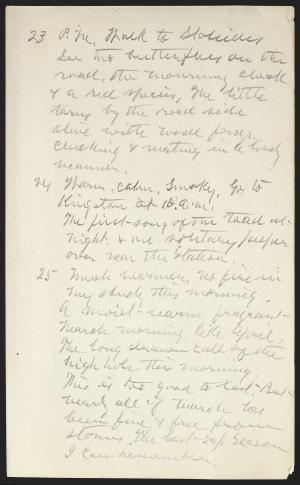 23 P.M. Walk to Slabsides
See two butterflies on the
road, the mourning cloak
& a red species. The little
tarns by the road side
alive with wood frogs,
clucking & mating in a lively
manner.
24 Warm, calm, smoky, Go to
Kingston at 10 a.m.
The first song of the toad at
night, & one solitary peeper
over near the station.
25 Much warmer, no fire in
my study this morning.
A moist warm fragrant
March morning, like April,
The long drawn call of the
high hole this morning.
This is too good to last. But
nearly all of March has
been fine & free from
storms. The best Sap Season
I can remember.